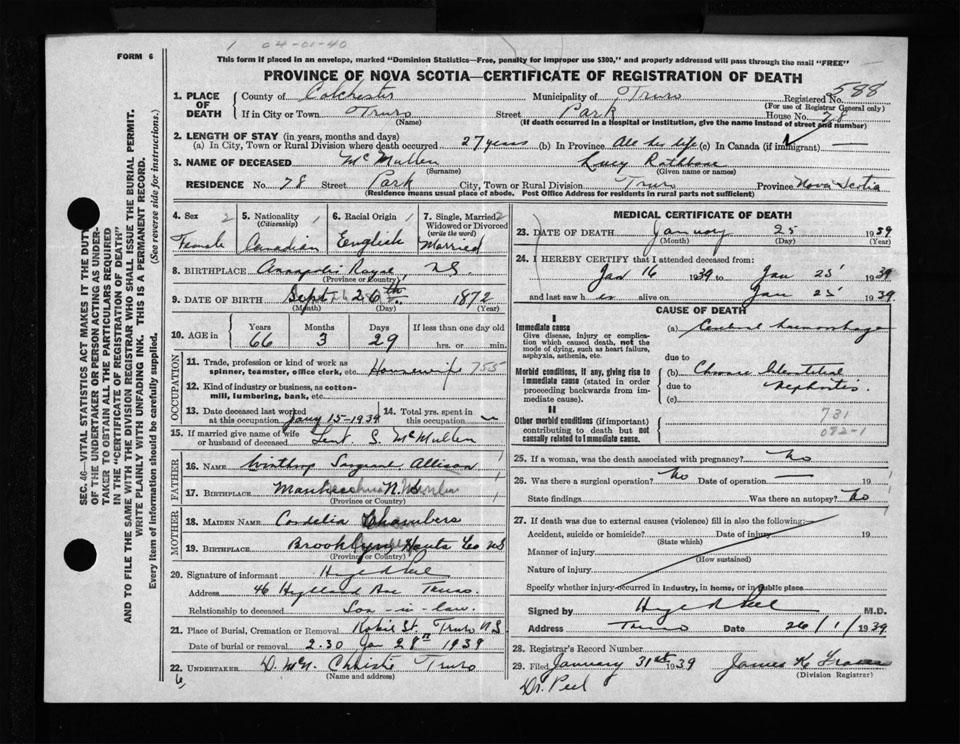 1 04-01-40
FORM 6
This form if placed in an envelope, marked "Dominion Statistics—Free, penalty for improper use $300," and properly addressed will pass through the mail "FREE"
PROVINCE OF NOVA SCOTIA—CERTIFICATE OF REGISTRATION OF DEATH
588
1. PLACE OF DEATH County of Colchester Municipality of Truro Registered No. (For use of Registrar General only)
If in City or Town Truro (Name) Street Park House No. 78
(If death occurred in a hospital or institution, give the name instead of street and number)
2. LENGTH OF STAY (in years, months and days)
(a) In City, Town or Rural Division where death occurred 27 years (b) In Province All her life (c) In Canada (if immigrant) —
3. NAME OF DECEASED McMullen (Surname) Lucy Rathbone (Given name or names)
RESIDENCE No. 78 Street Park City, Town or Rural Division Truro Province Nova Scotia
(Residence means usual place of abode. Post Office Address for residents in rural parts not sufficient)
4. Sex 2 Female
5. Nationality (Citizenship) 1 Canadian
6. Racial Origin 1 English
7. Single, Married, Widowed or Divorced (write the word) 2 Married
8. BIRTHPLACE Annapolis Royal, N.S. (Province or Country)
9. DATE OF BIRTH Sept 26th 1872 (Month) (Day) (Year)
10. AGE in Years 66 Months 3 Days 29 If less than one day old hrs. or min.
OCCUPATION
11. Trade, profession or kind of work as spinner, teamster, office clerk, etc. Housewife 755
12. Kind of industry or business, as cotton-mill, lumbering, bank, etc.
13. Date deceased last worked at this occupation Jany 15-1939 14. Total yrs. spent in this occupation
15. If married give name of wife or husband of deceased S. McMullen
FATHER
16. Name Winthrop Sargent Allison
17. Birthplace (Province or Country)
MOTHER
18. Maiden Name Cordelia Chambers
19. Birthplace Brooklyn Hants Co NS (Province or Country)
20. Signature of informant
Address 46 Highland Ave Truro
Relationship to deceased Son-in-law
21. Place of Burial, Cremation or Removal Robie St. Truro NS
Date of burial or removal 2.30 Jan 28th 1939
22. UNDERTAKER D. McN. Christie Truro
(Name and address)
6
MEDICAL CERTIFICATE OF DEATH
23. DATE OF DEATH January 25 1939
(Month) (Day) (Year)
24. I HEREBY CERTIFY that I attended deceased from:
Jan 16 1939 to Jan 25 1939
and last saw her alive on Jan 25 1939
CAUSE OF DEATH
I
Immediate cause
Give disease, injury or complication which caused death, not the mode of dying, such as heart failure, asphyxia, asthenia, etc.
(a) Cerebral hæmorrhage
due to
Morbid conditions, if any, giving rise to immediate cause (stated in order proceeding backwards from immediate cause).
(b) Chronic Interstitial
due to Nephritis
(c)
II
Other morbid conditions (if important) contributing to death but not causally related to immediate cause.
731
092-1
25. If a woman, was the death associated with pregnancy? No
26. Was there a surgical operation? No Date of operation — 19
State findings Was there an autopsy? No
27. If death was due to external causes (violence) fill in also the following:
Accident, suicide or homicide? Date of injury 19
(State which)
Manner of injury
(How sustained)
Nature of injury
Specify whether injury occurred in industry, in home, or in public place
Signed by M.D.
Address Truro Date 26/1/1939
28. Registrar's Record Number
29. Filed January 31st 1939 James K Fraser
(Division Registrar)
Dr. Peel
SEC. 46—VITAL STATISTICS ACT MAKES IT THE DUTY OF THE UNDERTAKER OR PERSON ACTING AS UNDERTAKER TO OBTAIN ALL THE PARTICULARS REQUIRED IN THE "CERTIFICATE OF REGISTRATION OF DEATH"
AND TO FILE THE SAME WITH THE DIVISION REGISTRAR WHO SHALL ISSUE THE BURIAL PERMIT.
WRITE PLAINLY WITH UNFADING INK. THIS IS A PERMANENT RECORD.
Every item of information should be carefully supplied. (See reverse side for instructions.)